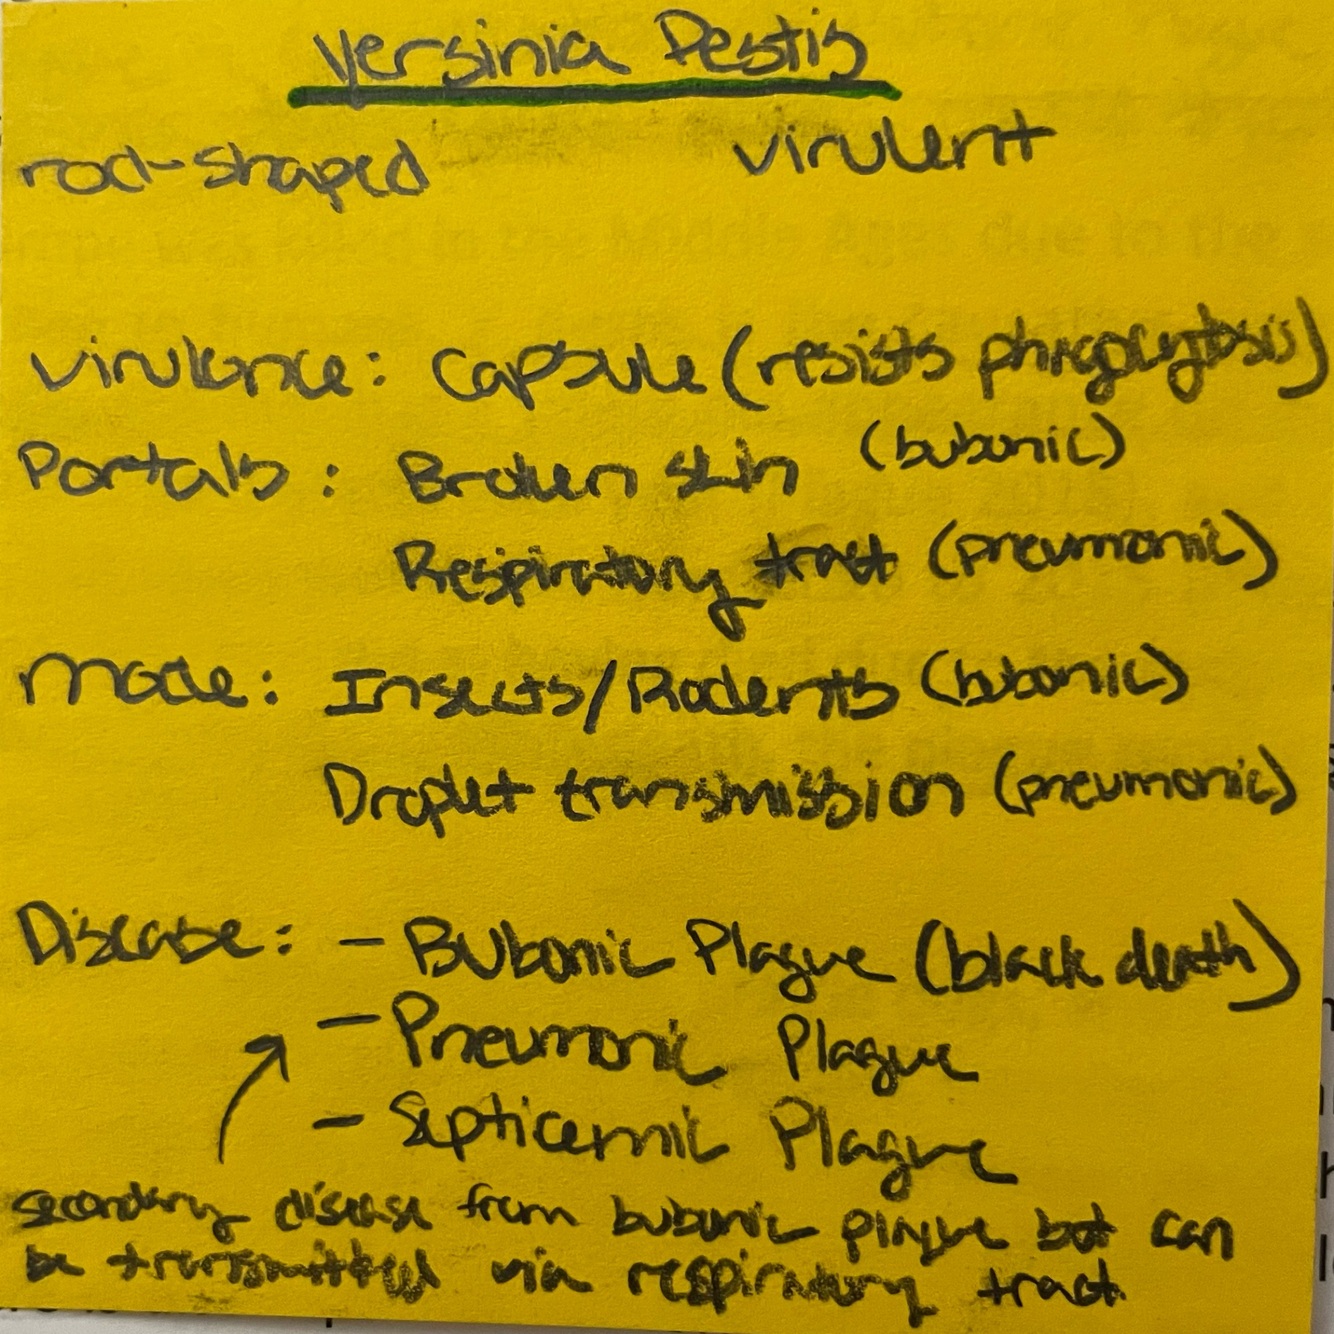 Yersinia Pestis
rod-shaped virulent
virulence: capsule (resists phagocytosis)
Portals: Broken skin (bubonic)
Respiratory tract (pneumonic)
Mode: Insects/Rodents (bubonic)
Droplet transmission (pneumonic)
Disease: - Bubonic Plague (black death)
- Pneumonic Plague
- Septicemic Plague
secondary disease from bubonic plague but can
be transmitted via respiratory tract